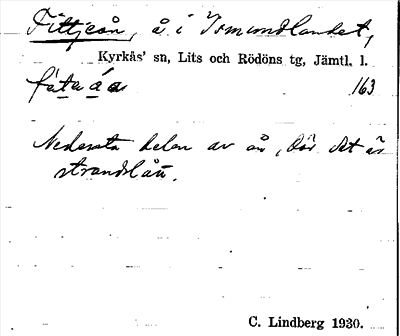 Fittjeån, å i Ismundlandet,
Kyrkås' sn, Lits och Rödöns tg, Jämtl. l.
163
Nedersta delen av ån, där det är
strandslått.
C. Lindberg 1930.